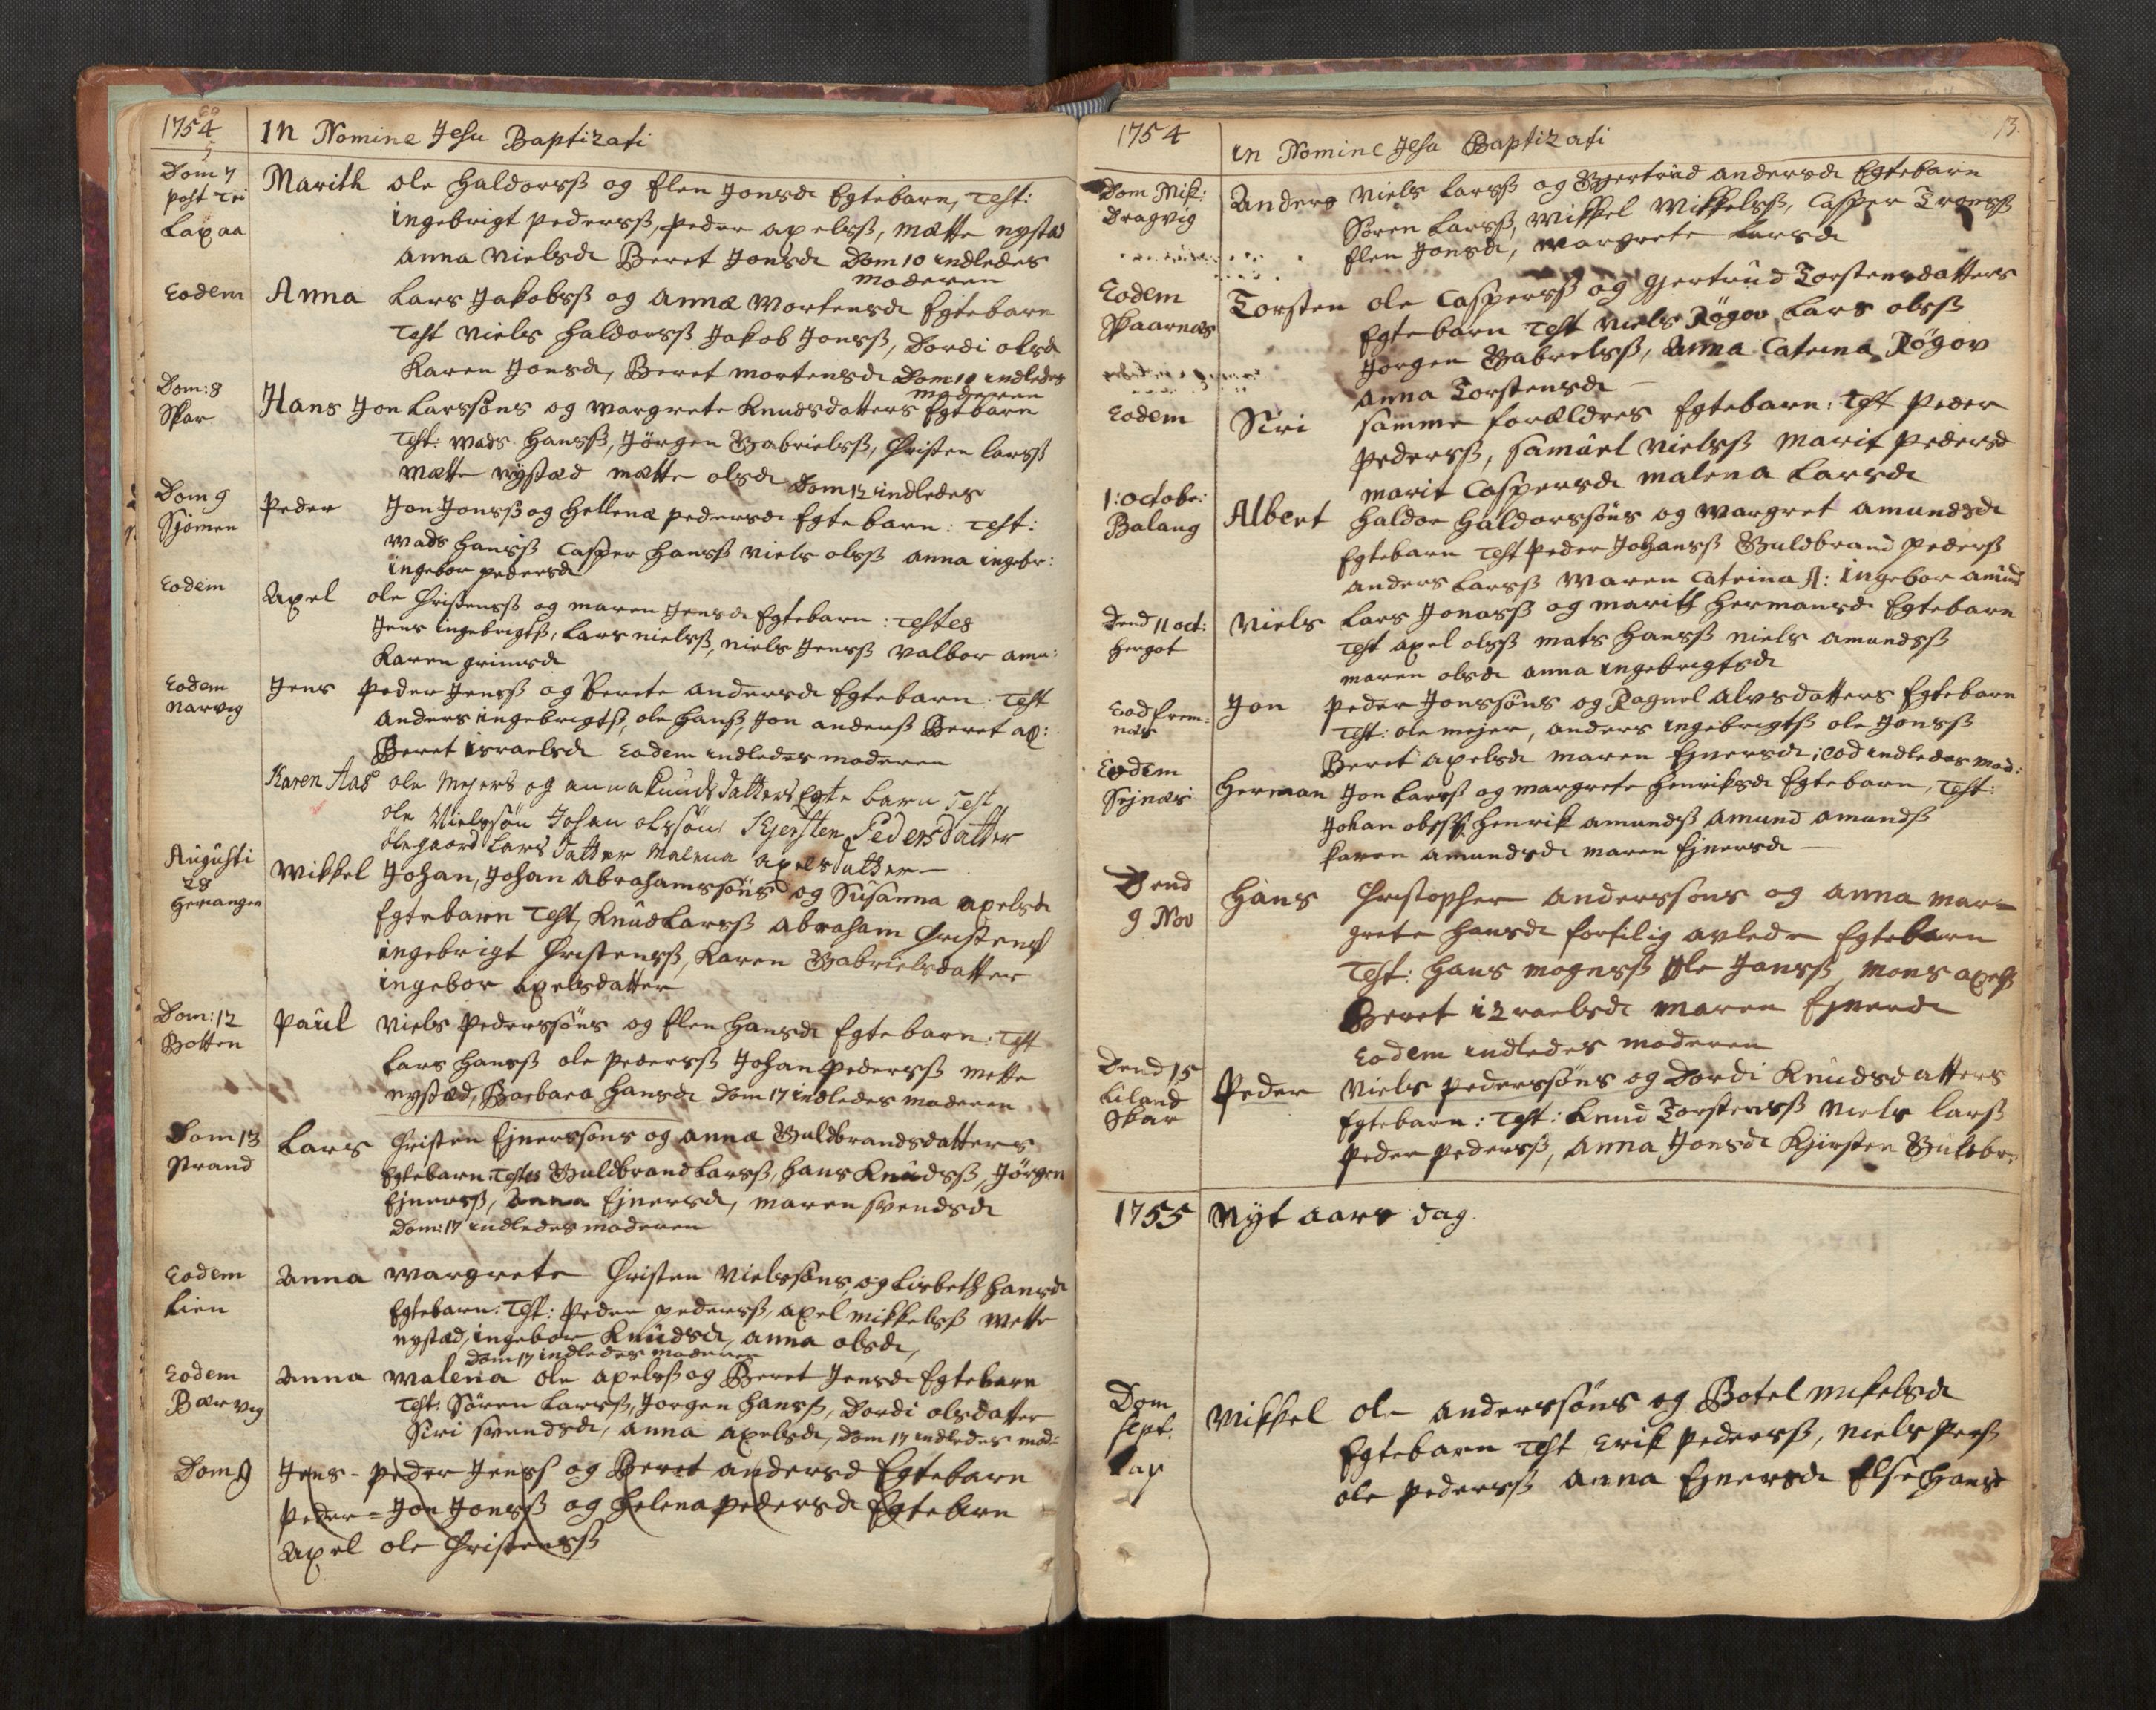 1754
In Nomine Jesu Baptizati
Dom 7
post Tri
Laxaa
Marith ole Haldorsß og Elen Jonsd Egtebarn, Test:
Ingebrigt Pedersß, Peder Axelsß, Mætte Nystad
Anna Nielsd Beret Jonsd Dom 10 indledes
moderen
Eodem Anna Lars Jakobsß og Annæ Mortensd Egtebarn
Test Niels Haldorsß Jakob Jonsß, Dordi olsd
Karen Jonsd, Beret Mortensd Dom 10 indledes
moderen
Dom: 8
Skar
Hans Jon Larssøns og Margrete Knudsdatters Egtbarn
Test: Mads Hansß, Jörgen Gabrielsß, Christen Larsß
Mætte Nystad Mætte olsd Dom 12 indledes
Dom 9
Sjomen
Peder Jon Jonsß og Hellenæ Pedersd Egtebarn: Test:
Mads Hansß Casper Hansß Niels olsß Anna Ingebr:
Ingebor Pedersd
Eodem Axel ole Christensß og Maren Jensd Egtebarn: Testes
Jens Ingebrigtß, Lars Nielsß, Niels Jensß Valbor Amu:
Karen Grimsd
Eodem
Narvig
Jens Peder Jensß og Berete Andersd Egtebarn Test
Anders Ingebrigtß, ole Hansß, Jon Andersß Beret ax:
Beret Israelsd Eodem indledes moderen
Karen Aas ole Mejers og Anna Knudsdatters Egte barn Test
ole Nielssøn Johan olssøn Kjersten Pedersdatter
olegaard Larsdatter Malena Axelsdatter
Augusti
28
Herianger
Mikkel Johan, Johan Abrahamssøns og Susanna Axelsd
Egtebarn Test, Knud Larsß Abraham Christensß
Ingebrigt Christensß, Karen Gabrielsdatter
Ingebor Axelsdatter
Dom: 12
Botten
Paul Niels Pederssøns og Elen Hansd Egtebarn: Test
Lars Hansß ole Pedersß Johan Pedersß Mette
Nystad, Barbara Hansd Dom 17 indledes moderen
Dom 13
Strand
Lars Christen Ejnerssøns og Anna Guldbrandsdatters
Egtebarn: Testes Guldbrand Larsß, Hans Knudsß, Jörgen
Ejnersß, Anna Ejnersd, Maren Svendsd
Dom: 17 indledes moderen
Eodem
Lien
Anna Margrete Christen Nielssøns og Lisbeth Hansd
Egtebarn: Test: Peder Pedersß, Axel Mikkelsß Mette
Nystad, Ingebor Knudsd, Anna olsd,
Dom 17 indledes moderen
Eodem
Bærvig
Anna Malena ole Axelsß og Beret Jensd Egtebarn
Test: Sören Larsß, Jorgen Hansß, Dordi olsdatter
Siri Svendsd, Anna Axelsd, Dom 17 indledes mod:
Dom 9 Jens - Peder Jensß og Beret Andersd Egtebarn
Peder = Jon Jonsß og Helena Pedersd Egtebarn
Axel ole Christensß
1754
13.
in Nomine Jesu Baptizati
Dom Mik:
Dragvig
Anders Niels Larsß og Gjertrud Andersd Egtebarn
Sören Larsß, Mikkel Mikkelsß, Casper Tronsß
Elen Jonsd, Margrete Larsd
Eodem
Skaarnes
Torsten ole Caspersß og Gjertrud Torstensdatters
Egtebarn Test Niels Røgov Lars olsß
Jørgen Gabrelsß, Anna Catrina Røgov
Anna Torstensd
Eodem Siri samme forældres Egtebarn: Test Peder
Pedersß, Samuel Nielsß Marit Pedersd
Marit Caspersd Malena Larsd
1: octobr:
Balang
Albert Haldor Haldorssøns og Margret Amundsd
Egtebarn Test Peder Johansß Guldbrand Pedersß
Anders Larsß Maren Catrina A: Ingebor Amund
Dend 11 oct:
Hergot
Niels Lars Jonasß og Maritt Hermansd Egtebarn
Test Axel olsß Mats Hansß Niels Amundsß
Maren olsd Anna Ingebrigtsd
Eod Frem-
næs
Jon Peder Jonssøns og Ragnel Alvsdatters Egtebarn
Test: ole Mejer, Anders Ingebrigtß ole Jonsß
Beret Axelsd Maren Ejnersd; eod indledes mod:
Eodem
Sejnæs
Herman Jon Larsß og Margrete Henriksd Egtebarn, Test:
Johan olsß, Henrik Amundsß Amund Amundsß
Karen Amundsd Maren Ejnersd
Dend
9 Nov
Hans Christopher Anderssøns og Anna Mar=
grete Hansd fortilig avlede Egtebarn
Test: Hans Mognsß Ole Jansß, Mons Axelsß
Beret Izraelsd Maren Ejnersd
Eodem indledes moderen
Dend 15
Liland
Skar
Peder Niels Pederssøns og Dordi Knudsdatters
Egtebarn: Test: Knud Torstensß Niels Larsß
Peder Pedersß, Anna Jonsd Kjirsten Guldbr:
1755 Nyt aars dag.
Dom
sept.
Lax
Mikkel ole Anderssøns og Botel Mikelsd
Egtebarn Test Erik Pedersß, Niels Persß
ole Pedersß Anna Ejnersd Else Hansd